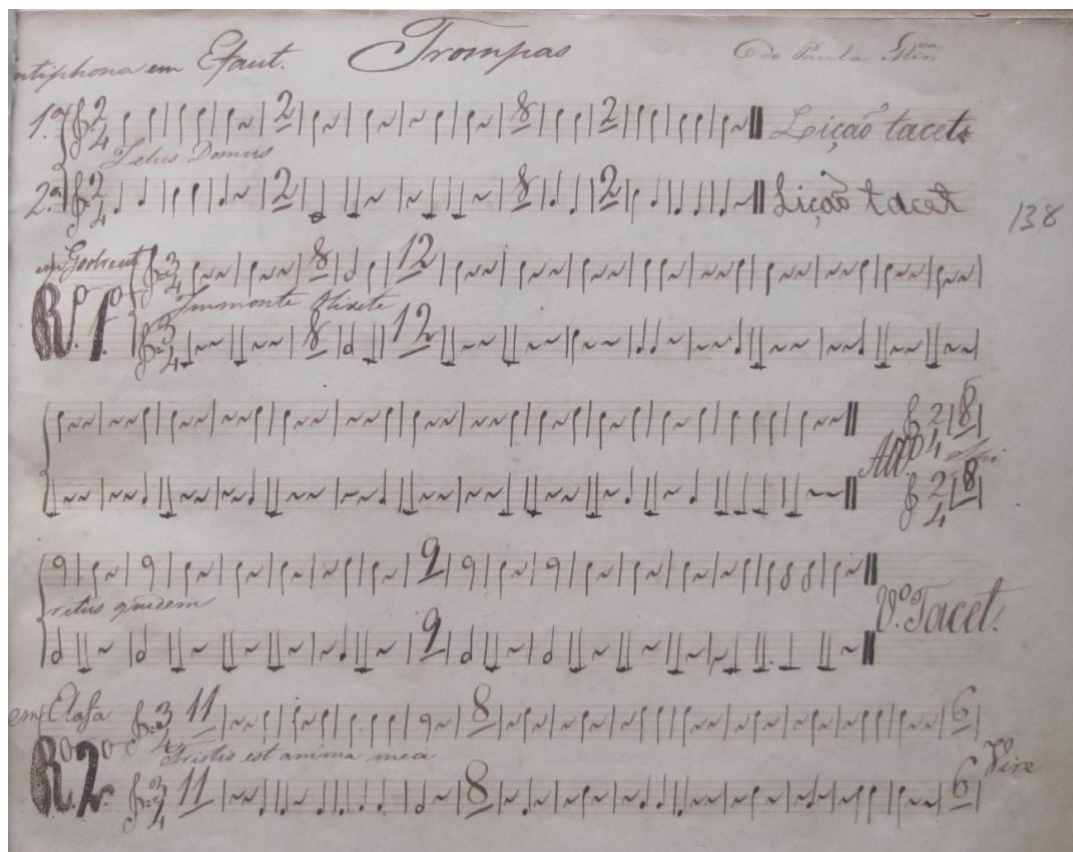 ntiphona em Efaut. Trompas
1.ª 2/4 2 8 2 Lição tacet
Zelus Domus
2.ª 2/4 2 8 2 Lição tacet
138
em 3/4 8 12
R.º 1.º In monte Olivete
3/4 8 12
2/4 8
All.º
2/4 8
9
ritus quidem
V.º Tacet.
9
em Elafa 3/4 11 8 6
R.º 2.º Tristis est anima mea
Vire
3/4 11 8 6